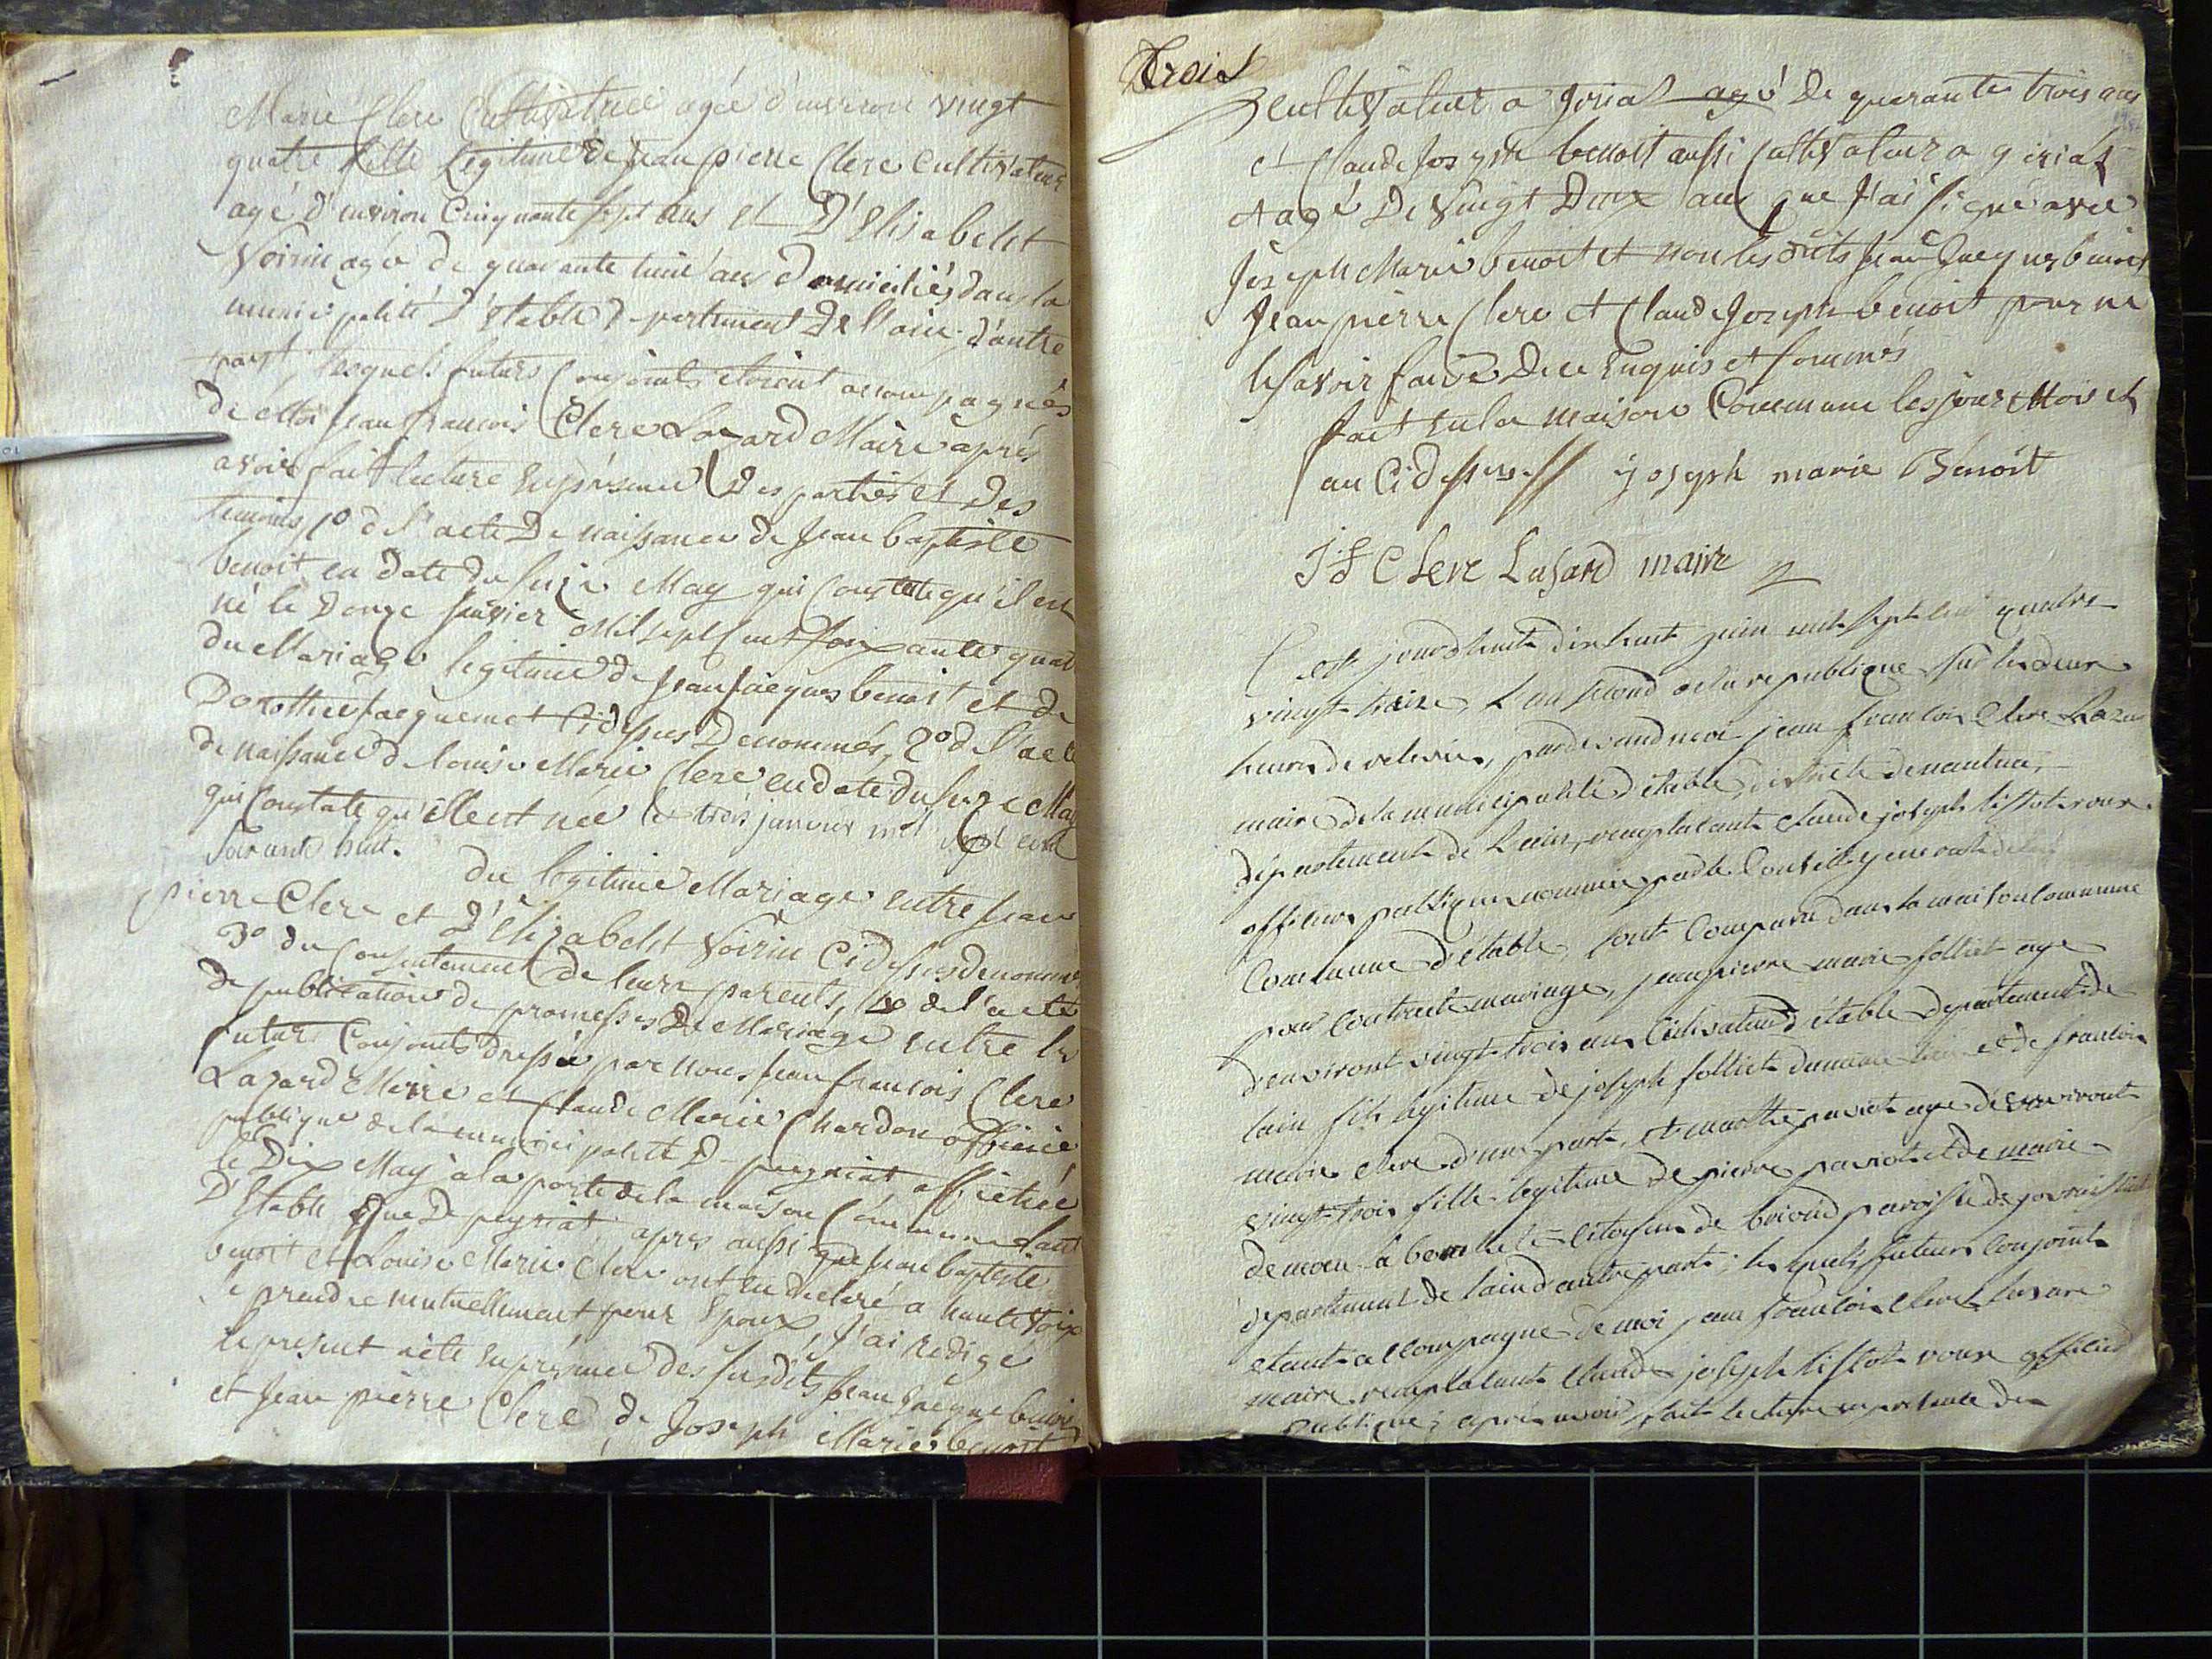 Marie Clerc Cultivatrice agée d'environ vingt
quatre fille Légitime de Jean pierre Clerc Cultivateur
agé d'environ Cinquante sept ans et D'Elisabeht
Voirin agé de quarante huit ans domiciliés dans la
municipalité D'Etable Departement De l'ain, d'autre
part, lesquels futurs Conjoints étoient accompagnés
de Moi Jean francois Clerc Lazard Maire après
avoir fait lecture En présence Des parties et Des
temoins, 1º de l'acte De naissance de Jean baptiste
benoit en date du seize May qui Constate qu'il est
né le Douze janvier Mil sept Cent soixante quatre
du Mariage légitime de Jean Jacques benoit et de
Dorothée Jacquemet Cidessus Denommés, 2º de l'acte
de naissance de louise Marie Clerc en date du seize May
qui Constate qu'elle est née le trois janvier mil sept cent
soixante huit.
du légitime Mariage entre Jean
pierre Clerc et D'Elizabeht Voirin Cidessus denommés
3º du Consentement de leurs parents, 4º de l'acte
de publication de promesses De Mariage entre les
futurs Conjoints dressée par nous Jean francois Clerc
Lazard Maire et Claude Marie Chardon officier
publique de la municipalité D peyriat affichée
le Dix May à la porte de la maison Commune tant
D'Etable que De peyriat après aussi que Jean baptiste
benoit et Louise Marie Clerc ont eu declaré a haute voix
se prendre mutuellement pour Epoux, J'ai Redigé
le present acte En présence des susdits Jean Jacque benoit
et Jean pierre Clerc de Joseph Marie benoit
Trois
Cultivateur a Giriat agé De quarante trois ans
et Claude Joseph benoit aussi Cultivateur a giriat
et agé De Vingt Deux ans que J'ai signé avec
Joseph Marie benoit et non lesdits Jean Jacques benoit
Jean pierre Clerc et Claude Joseph benoit pour ne
le savoir faire De ce Enquis et sommés
fait en la maison Commune les jour Mois et
an Cidessus // joseph marie Bénoit
J f Clerc Lasard maire
Cest jourdhuit dixhuit juin mil sept cent quatre
vingt treize Lan second de la republique sur les deux
heures de relevée, pardevand moi jean francois Clerc Lazard
maire de la municipalité d'étable, districte de nantua,
département de Lain, remplacant claude joseph tissot roux
officier publique nommé par le Conseil general de la
Commune d'étable, sont Comparu dans la maison Commune
pour Contracter mariage, jean pierre marie folliet age
d'environt vingt trois ans Cultivateur d'étable departement de
lain fils legitime de joseph folliet et de francoise
marie clerc d'une part, et marthe pariot age de environt
vingt trois fille legitime de pierre pariot et de marie
demeure à citoyens de brioud paroisse de
département de lain d'autre part; les quels futurs Conjoints
etant accompagne de moi jean francois Clerc lasare
maire remplacant claude joseph tissot roux officier
publique; apres avoir fait lecture en presence des